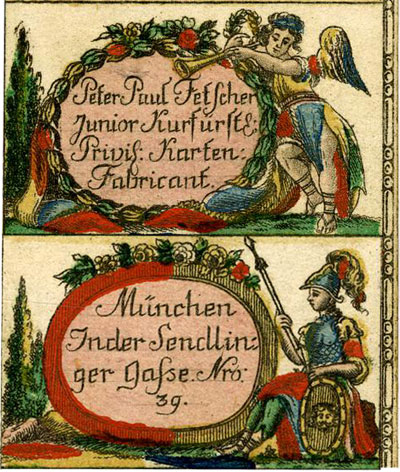 Peter Paul Fetscher
Junior Kurfürstl:
Privil: Karten:
Fabricant.
München
In der Sendlin:
ger Gaſse. Nro:
39.